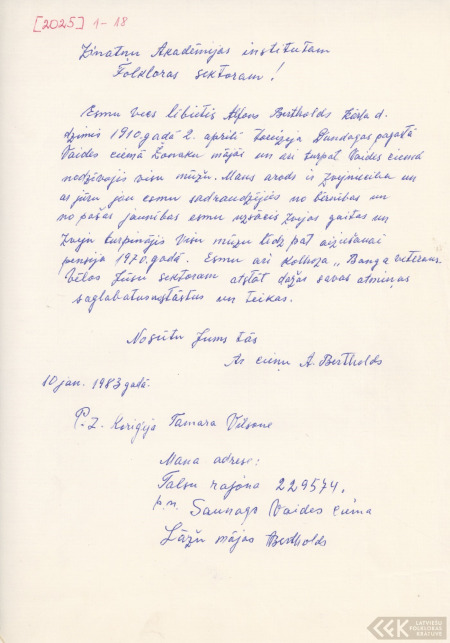 [2025] 1-18
Zinatņu Akadēmijas institutam
Folkloras sektoram!
Esmu vecs libietis Alfons Bertholds Kārļa d.
dzimis 1910. gadā 2. aprilī Dundagas pagastā
Vaides ciemā Žonaku mājās un arī turpat Vaides ciemā
nodzivojis visu mūžu. Mans arods ir zvejnieciba un
ar jūru jau esmu sadraudzējies no bērnibas un
no pašas jaunibas esmu uzsācis zvejas gaitas un
zveju turpinājis visu mūžu lidz pat aiziešanai
pensijā 1970. gadā. Esmu arī kolhoza „Banga veterans.
Vēlos Jūsu sektoram atstāt dažas savas atmiņas
saglabatus nostāstus un teikas.
Nosūtu Jums tās
Ar cieņu A. Bertholds
10 jan. 1983 gadā.
P.Z. Tamara Vilsone
Mana adrese:
Talsu rajona 229574.
p.n. Saunags Vaides ciema
Lāžu mājās Bertholds
LATVIEŠU
FOLKLORAS
KRĀTUVE